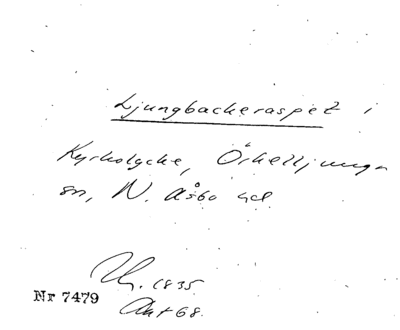 Ljungbackeraset i
Kyrkolycke, Örkelljunga
sn, N. Åsbo hd
1835
Nr 7479
Akt 68.